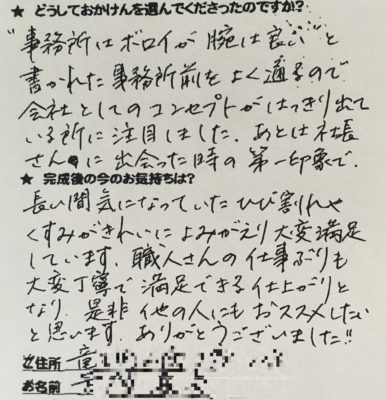 ★ どうしておかけんを選んでくださったのですか?
"事務所はボロイが腕は良い"と
書かれた事務所前をよく通るので
会社としてのコンセプトがはっきり出て
いる所に注目しました. あとは社長
さんに出会った時の第一印象で.
★ 完成後の今のお気持ちは?
長い間気になっていたひび割れや
くすみがきれいによみがえり大変満足
しています. 職人さんの仕事ぶりも
大変丁寧で満足できる仕上がりと
なり. 是非他の人にもおススメしたい
と思います. ありがとうございました!!
ご住所 竜
お名前